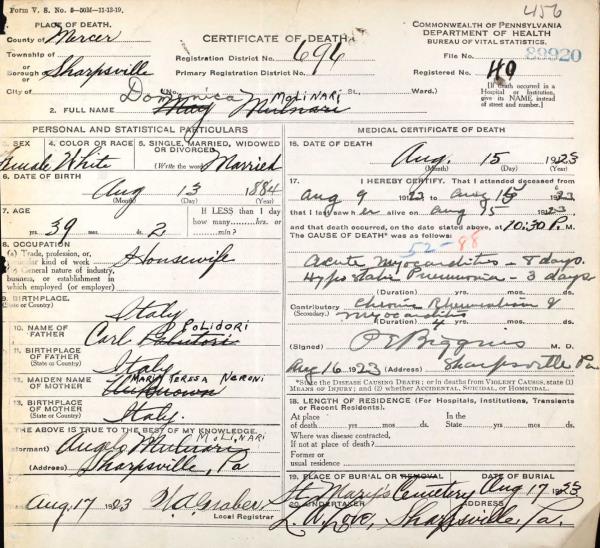 Form V. S. No. 5-50M-11-13-19.
456
PLACE OF DEATH.
County of Mercer
Township of
or
Borough of Sharpsville
or
City of
CERTIFICATE OF DEATH.
Registration District No. 696
Primary Registration District No.
(No. St., Ward.)
COMMONWEALTH OF PENNSYLVANIA
DEPARTMENT OF HEALTH
BUREAU OF VITAL STATISTICS.
File No. 89920
Registered No. 49
[If death occurred in a Hospital or Institution, give its NAME, instead of street and number.]
Dominica MOLINARI
2. FULL NAME May Mulnari
PERSONAL AND STATISTICAL PARTICULARS
3. SEX
Female
4. COLOR OR RACE
White
5. SINGLE, MARRIED, WIDOWED OR DIVORCED
(Write the word) Married
6. DATE OF BIRTH
Aug 13 1884
(Month) (Day) (Year)
7. AGE
39 yrs. mos. 2 ds.
If LESS than 1 day how many hrs. or min.?
8. OCCUPATION
(a) Trade, profession, or particular kind of work Housewife
(b) General nature of industry, business, or establishment in which employed (or employer)
9. BIRTHPLACE.
(State or Country) Italy
10. NAME OF FATHER
POLIDORI
Carl
11. BIRTHPLACE OF FATHER
(State or Country) Italy
12. MAIDEN NAME OF MOTHER
MARIA TERESA NERONI
Unknown
13. BIRTHPLACE OF MOTHER
(State or Country) Italy.
14. THE ABOVE IS TRUE TO THE BEST OF MY KNOWLEDGE.
MOLINARI
(Informant) Angelo Mulnari
(Address) Sharpsville, Pa
Aug. 17 1923 Local Registrar
MEDICAL CERTIFICATE OF DEATH
16. DATE OF DEATH
Aug. 15 1923
(Month) (Day) (Year)
17. I HEREBY CERTIFY, That I attended deceased from
Aug 9 1923, to Aug 15 1923
that I last saw her alive on Aug 15 1923
and that death occurred, on the date stated above, at 10:30 P. M.
The CAUSE OF DEATH* was as follows:
52-88
Acute Myocarditis - 8 days.
Hypostatic Pneumonia - 3 days
(Duration) yrs. mos. ds.
Contributory Chronic Rheumatism &
(Secondary.) Myocarditis
(Duration) yrs. mos. ds.
(Signed) P E Biggins M. D.
Aug 16 1923 (Address) Sharpsville Pa
*State the DISEASE CAUSING DEATH; or in deaths from VIOLENT CAUSES, state (1) MEANS OF INJURY; and (2) whether ACCIDENTAL, SUICIDAL, or HOMICIDAL.
18. LENGTH OF RESIDENCE (For Hospitals, Institutions, Transients or Recent Residents).
At place of death yrs. mos. ds. In the State yrs. mos. ds.
Where was disease contracted,
If not at place of death?
Former or usual residence
19. PLACE OF BURIAL OR REMOVAL
St. Mary's Cemetery
DATE OF BURIAL
Aug 17 1923
20. UNDERTAKER
L. A. Love,
ADDRESS
Sharpsville, Pa.